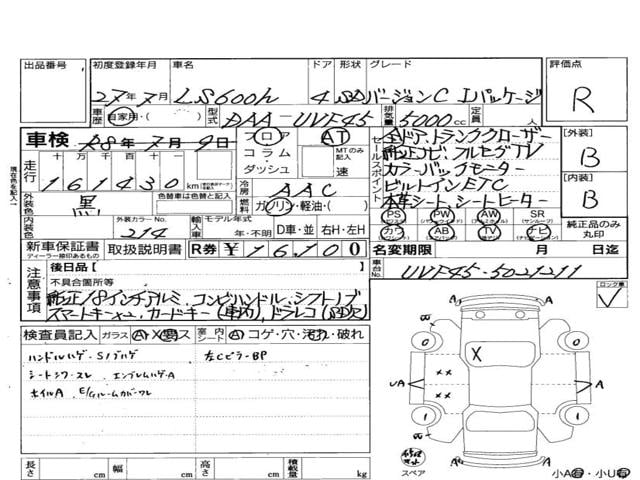 出品番号 初度登録年月 車名 ドア 形状 グレード 評価点
27年7月 LS600h 4 SD バージョンC Iパッケージ R
車歴 自家用・( ) 型式 DAA-UVF45 排気量 5000cc 定員 人
車検 R8年7月9日 フロア AT セールスポイント 全ドア、トランククローザー 【外装】
コラム・ダッシュ MTのみ記入 速 純正ナビ・フルセグTV B
走行 十 万 千 百 十 一 カラーバックモニター
161430km 冷房 AAC ビルトインETC 【内装】
外装色 黒 色替車は色替と記入 燃料 ガソリン・軽油・( ) 本革シート、シートヒーター B
PS PW AW SR
内装色 外装カラーNo. 214 輸入車 モデル年式 年・不明 D車・並 右H・左H カワ AB TV ナビ 純正品のみ丸印
新車保証書 取扱説明書 R券 ¥16,100 名変期限 月 日迄
ディーラー捺印あるもの
車台No. UVF45-5021211
注意事項 後日品【 】
不具合箇所等
純正18インチアルミ、コンビハンドル、シフトノブ
スマートキー×2、カードキー(車内)、ドラレコ
ロック車し
検査員記入 ガラス 室内シート A コゲ・穴・汚れ・破れ
ハンドルハゲ・S/ノブハゲ 左CピラーBP
シートシワ・スレ エンブレムハゲ・A
ホイルA E/Gルームカバーワレ
X
A
A
UA
A
0
0
1
1
長さ cm 幅 cm 高さ cm 積載量 kg
スペア 小A・小U